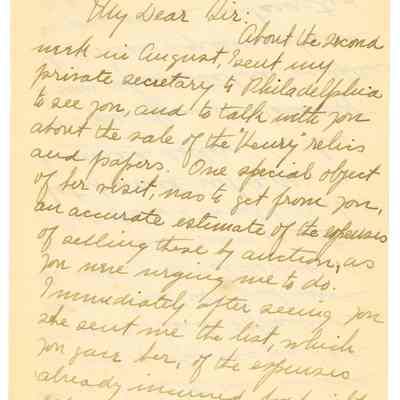 My Dear Sir:
About the second
week in August, I sent my
private secretary to Philadelphia
to see you, and to talk with you
about the sale of the "Henry" relics
and papers. One special object
of her visit, was to get from you,
an accurate estimate of the expenses
of selling these by auction, as
you were urging me to do.
Immediately after seeing you
she sent me the list, which
you gave her, of the expenses
already incurred